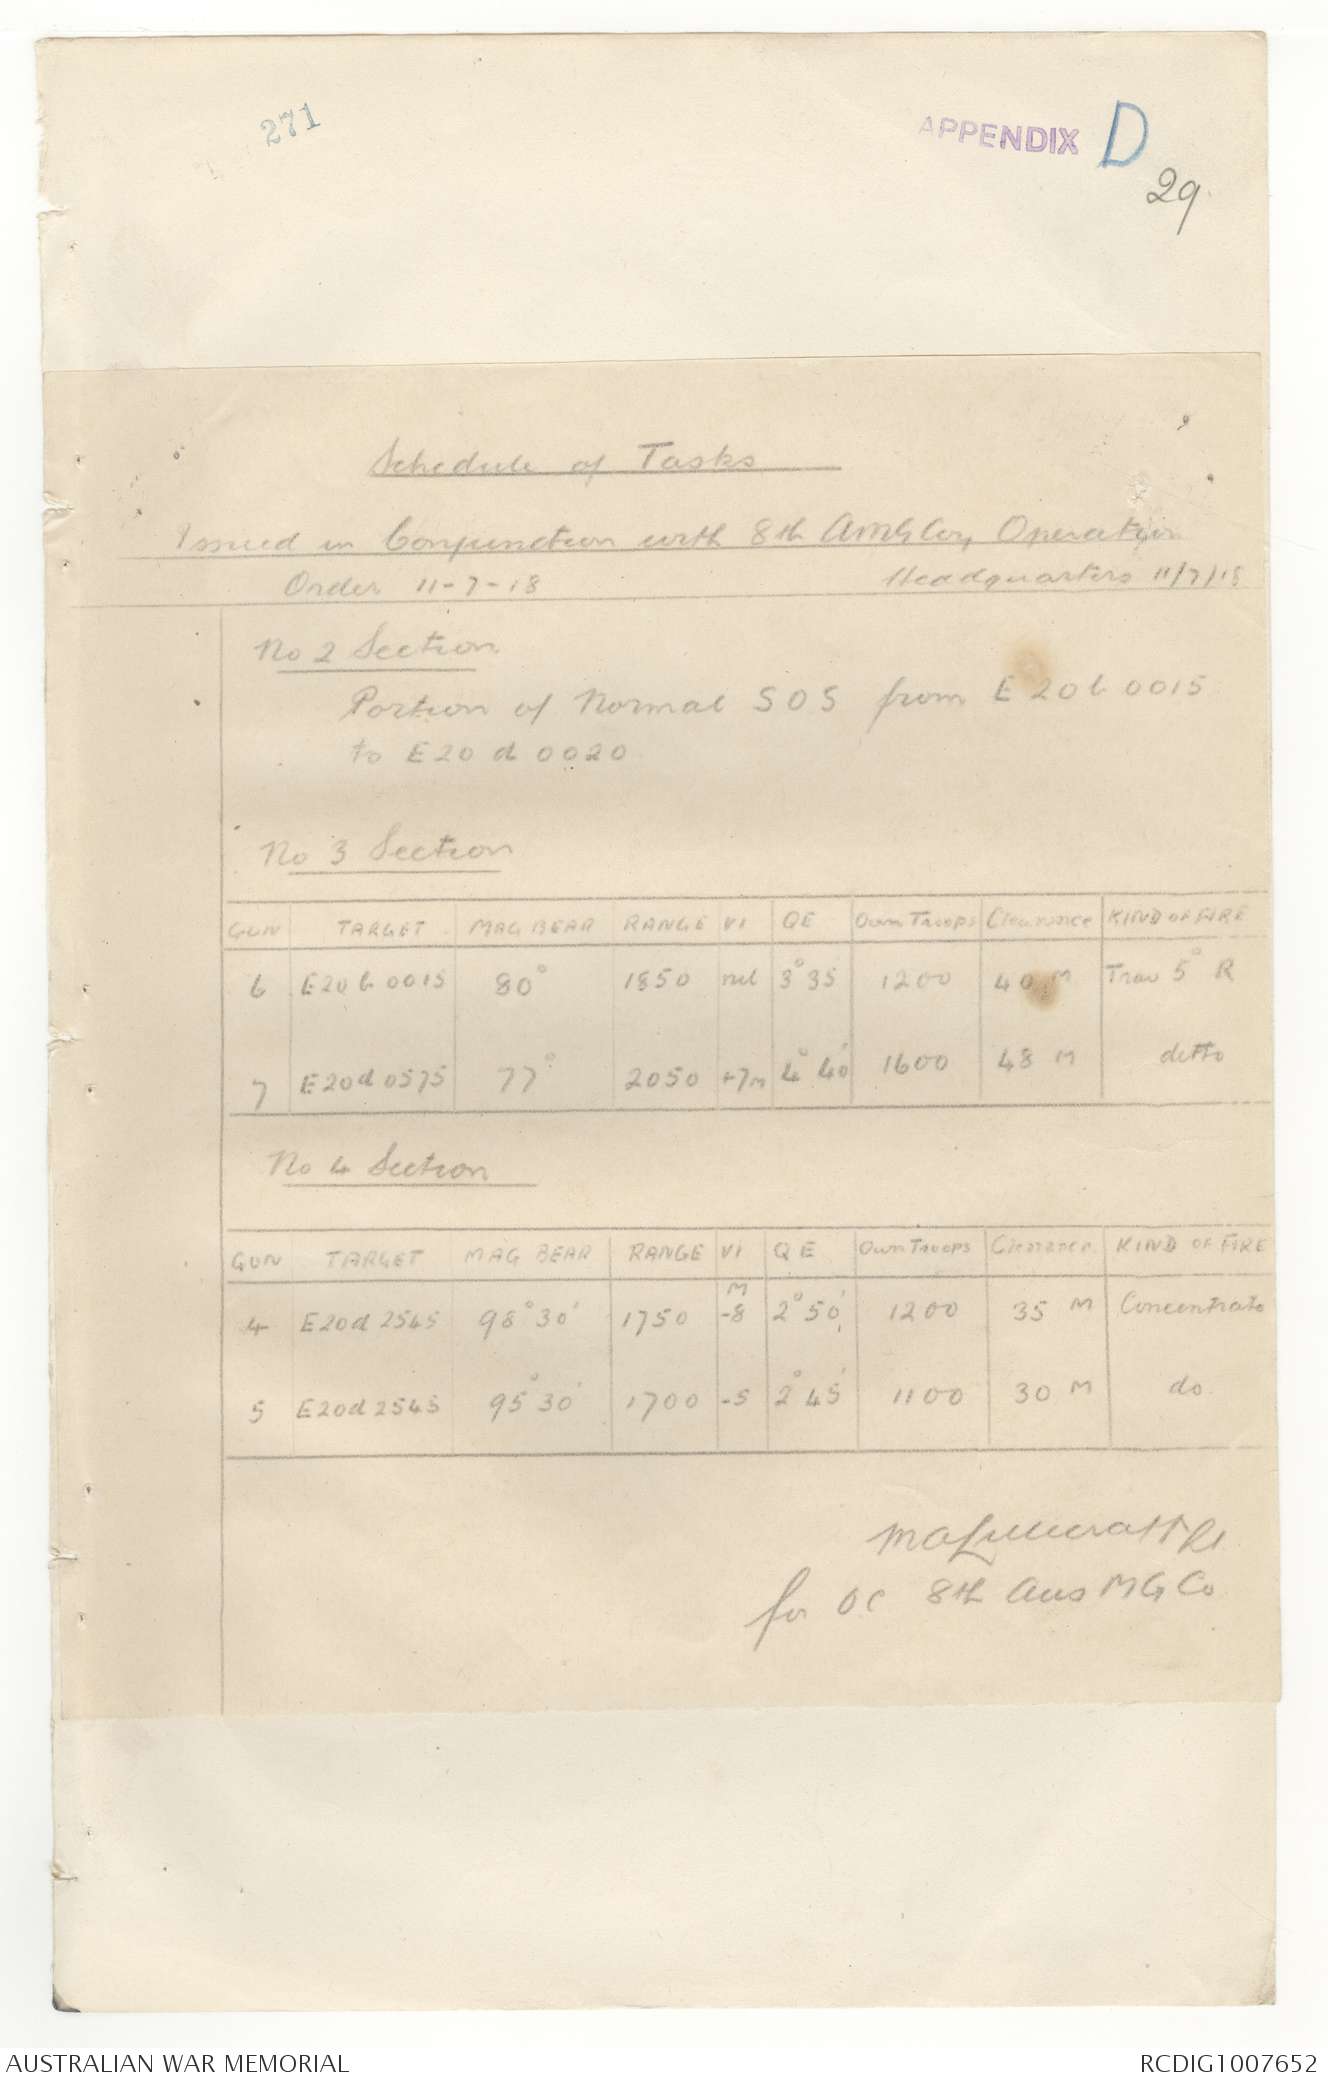 271
APPENDIX D
29.
Schedule of Tasks
Issued in Conjunction with 8th AMGCoy Operation
Order 11-7-18 Headquarters 11/7/18
No 2 Section
Portion of Normal SOS from E 20 b 0015
to E20 d 0020
No 3 Section
GUN TARGET MAG BEAR RANGE VI QE Own Troops Clearance KIND OF FIRE
6 E20 b 0015 80° 1850 nil 3° 35 1200 40 M Trav 5° R
7 E20d 0575 77° 2050 +7M 4° 40' 1600 48 M ditto
No 4 Section
GUN TARGET MAG BEAR RANGE VI QE Own Troops Clearance KIND OF FIRE
4 E20d 2545 98° 30' 1750 -8 M 2° 50' 1200 35 M Concentrate
5 E20d 2545 95° 30' 1700 -5 2° 45' 1100 30 M do.
for OC 8th Aus MG Co
AUSTRALIAN WAR MEMORIAL RCDIG1007652